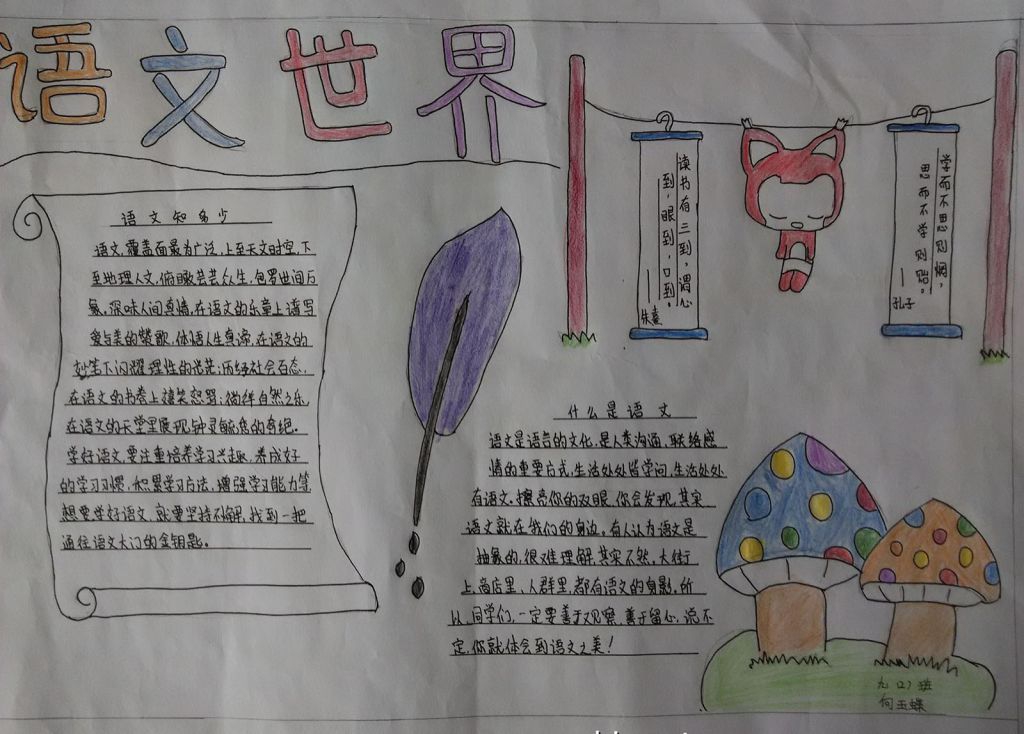 语文世界
语文知多少
语文，覆盖面最为广泛，上至天文时空，下
至地理人文，俯瞰芸芸众生，包罗世间万
象。深味人间真情，在语文的乐章上谱写
爱与美的赞歌，体悟人生真谛，在语文的
妙笔下闪耀理性的光芒；历经社会百态，
在语文的书卷上嬉笑怒骂；徜徉自然之乐
在语文的天堂里展现钟灵毓秀的奇绝。
学好语文，要注重培养学习兴趣，养成好
的学习习惯，积累学习方法，增强学习能力等
想要学好语文，就要坚持不懈，找到一把
通往语文大门的金钥匙。
读书有三到，谓心
到，眼到，口到。
朱熹
学而不思则罔，
思而不学则殆。
——
孔子
什么是语文
语文是语言的文化，是人类沟通，联络感
情的重要方式，生活处处留学问，生活处处
有语文，擦亮你的双眼，你会发现，其实
语文就在我们的身边。有人认为语文是
抽象的，很难理解，其实不然，大街
上，商店里，人群里，都有语文的身影，所
以，同学们，一定要善于观察，善于留心，说不
定，你就体会到语文之美！
九（2）班
何玉蝶